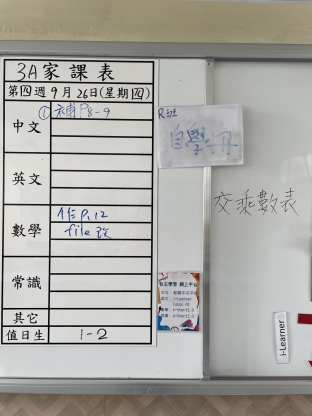 3A家課表
第四週 9月26日(星期四)
中文
① 補P8-9
英文
數學
作P.12
file改
常識
其它
值日生
1-2
R班
自學冊
交乘數表
自主學習 網上平台
i-Learner